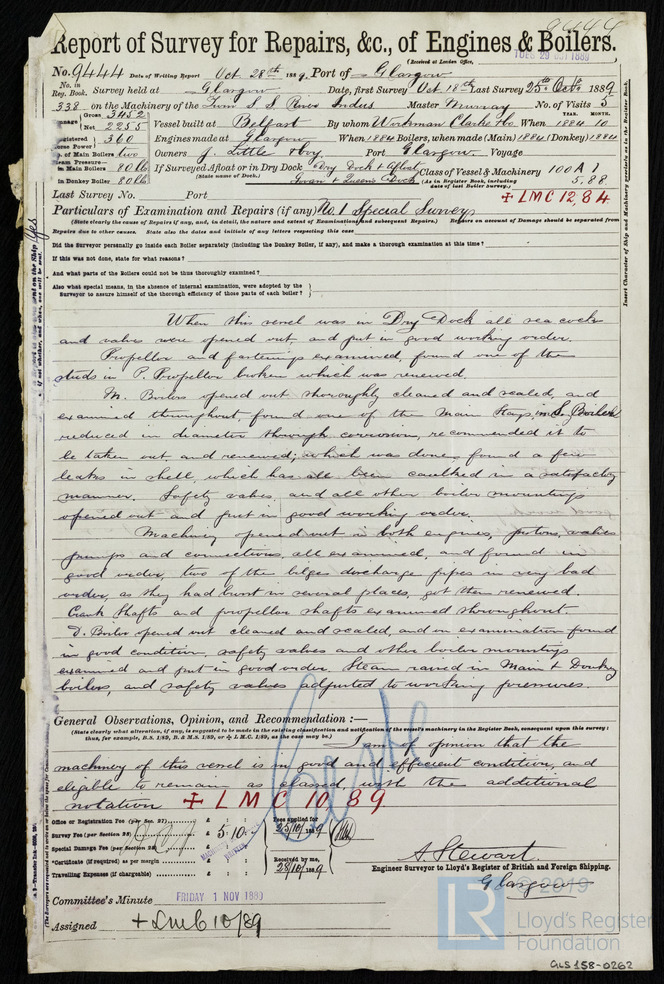 9444
Report of Survey for Repairs, &c., of Engines & Boilers.
(Received at London Office, TUES 29 OCT 1889
No. 9444 Date of Writing Report Oct. 28th 1889. Port of Glasgow
No. in Reg. Book. Survey held at Glasgow Date, first Survey Oct 18th Last Survey 25th Oct 1889
338 on the Machinery of the Twin S.S. Indus Master Murray No. of Visits 5
Tonnage Gross 3452
Net 2255 Vessel built at Belfast By whom Workman Clarke & Co. When 1884 YEAR. MONTH. 10
Registered Horse Power 360 Engines made at Glasgow When 1884 Boilers, when made (Main) 1884 (Donkey) 1884
No. of Main Boilers two Owners J. Little & Coy Port Glasgow. Voyage
Steam Pressure in Main Boilers 80 lb If Surveyed Afloat or in Dry Dock Dry Dock & Afloat Class of Vessel & Machinery 100 A 1
in Donkey Boiler 80 lb (State name of Dock.) Govan & Queen's Dock (As in Register Book, including date of last Boiler Survey.) 5,88
Last Survey No. Port + LMC 12,84
Particulars of Examination and Repairs (if any) No. 1 Special Survey
(State clearly the cause of Repairs if any, and, in detail, the nature and extent of Examinations and subsequent Repairs.) Repairs on account of Damage should be separated from
Repairs due to other causes. State also the dates and initials of any letters respecting this case
Did the Surveyor personally go inside each Boiler separately (including the Donkey Boiler, if any), and make a thorough examination at this time?
If this was not done, state for what reasons?
And what parts of the Boilers could not be thus thoroughly examined?
Also what special means, in the absence of internal examination, were adopted by the
Surveyor to assure himself of the thorough efficiency of those parts of each boiler?
When this vessel was in Dry Dock all sea cocks
and valves were opened out and put in good working order.
Propellor and fastenings examined, found one of the
studs in P. Propellor broken which was renewed.
M. Boilers opened out thoroughly cleaned and scaled, and
examined throughout, found one of the Main Stays in S. Boiler
reduced in diameter through corrosion, recommended it to
be taken out and renewed; which was done, found a few
leaks in shell, which has all been caulked in a satisfactory
manner. Safety valves, and all other boiler mountings
opened out and put in good working order.
Machinery opened out in both engines, pistons, valves
pumps and connections, all examined, and found in
good order, two of the bilges discharge pipes in very bad
order, as they had burst in several places, got them renewed.
Crank Shafts and propellor shafts examined throughout.
D. Boiler opened out cleaned and scaled, and on examination found
in good condition, safety valves and other boiler mountings
examined and put in good order. Steam raised in Main & Donkey
boilers, and safety valves adjusted to working pressures.
General Observations, Opinion, and Recommendation :—
(State clearly what alteration, if any, is suggested to be made in the existing classification and notification of the vessel's machinery in the Register Book, consequent upon this survey:
thus, for example, B.S. 1/89, B. & M.S. 1/89, or + L.M.C. 1/89, as the case may be.)
I am of opinion that the
machinery of this vessel is in good and efficient condition, and
eligible to remain as classed, with the additional
notation + L M C 10, 89
Office or Registration Fee (per Sec. 27) £ : :
Survey Fee (per Section 28) £ 5:10: Fees applied for 25/10/1889
Special Damage Fee (per Section 28) £ : :
*Certificate (if required) as per margin Received by me,
Travelling Expenses (if chargeable) £ : : 28/10/1889
A. Stewart.
Engineer Surveyor to Lloyd's Register of British and Foreign Shipping.
Glasgow
Committee's Minute FRIDAY 1 NOV 1889
Assigned + LMC 10/89
© 2019
LR
Lloyd's Register
Foundation
GLS 158-0262
Insert Character of Ship and Machinery precisely as in the Register Book.